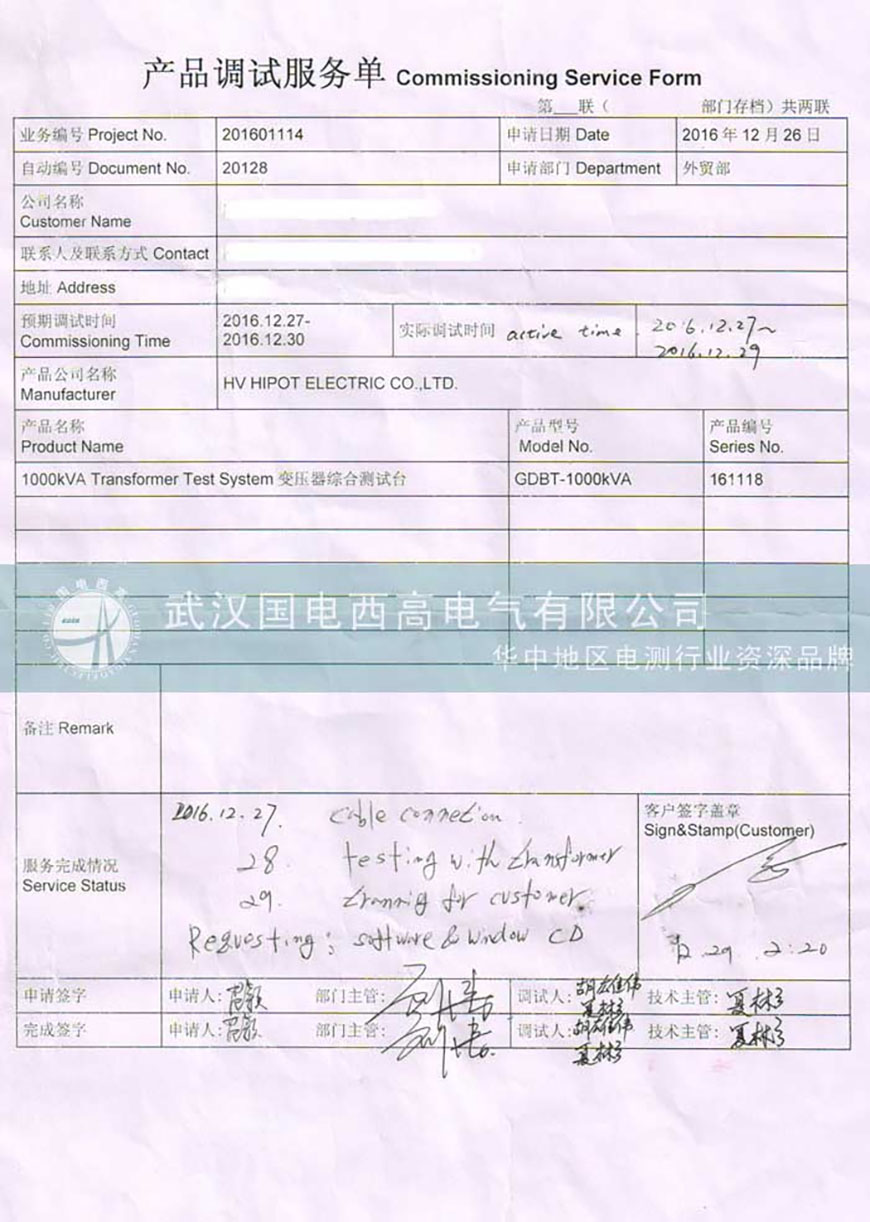 产品调试服务单 Commissioning Service Form
第___联（ 部门存档）共两联
业务编号 Project No. 201601114 申请日期 Date 2016 年 12 月 26 日
自动编号 Document No. 20128 申请部门 Department 外贸部
公司名称
Customer Name
联系人及联系方式 Contact
地址 Address
预期调试时间
Commissioning Time
2016.12.27-
2016.12.30
实际调试时间 active time. 2016.12.27~
2016.12.29
产品公司名称
Manufacturer
HV HIPOT ELECTRIC CO.,LTD.
产品名称
Product Name
产品型号
Model No.
产品编号
Series No.
1000kVA Transformer Test System 变压器综合测试台 GDBT-1000kVA 161118
国电西高
武汉国电西高电气有限公司
华中地区电测行业资深品牌
备注 Remark
服务完成情况
Service Status
2016.12.27. cable connetion.
28. testing with transformer
29. trannig for customer
Requesting: software & window CD
客户签字盖章
Sign&Stamp(Customer)
12.29 2:20
申请签字 申请人: 部门主管: 调试人: 胡雄伟 夏彬 技术主管: 夏彬
完成签字 申请人: 部门主管: 调试人: 胡雄伟 夏彬 技术主管: 夏彬